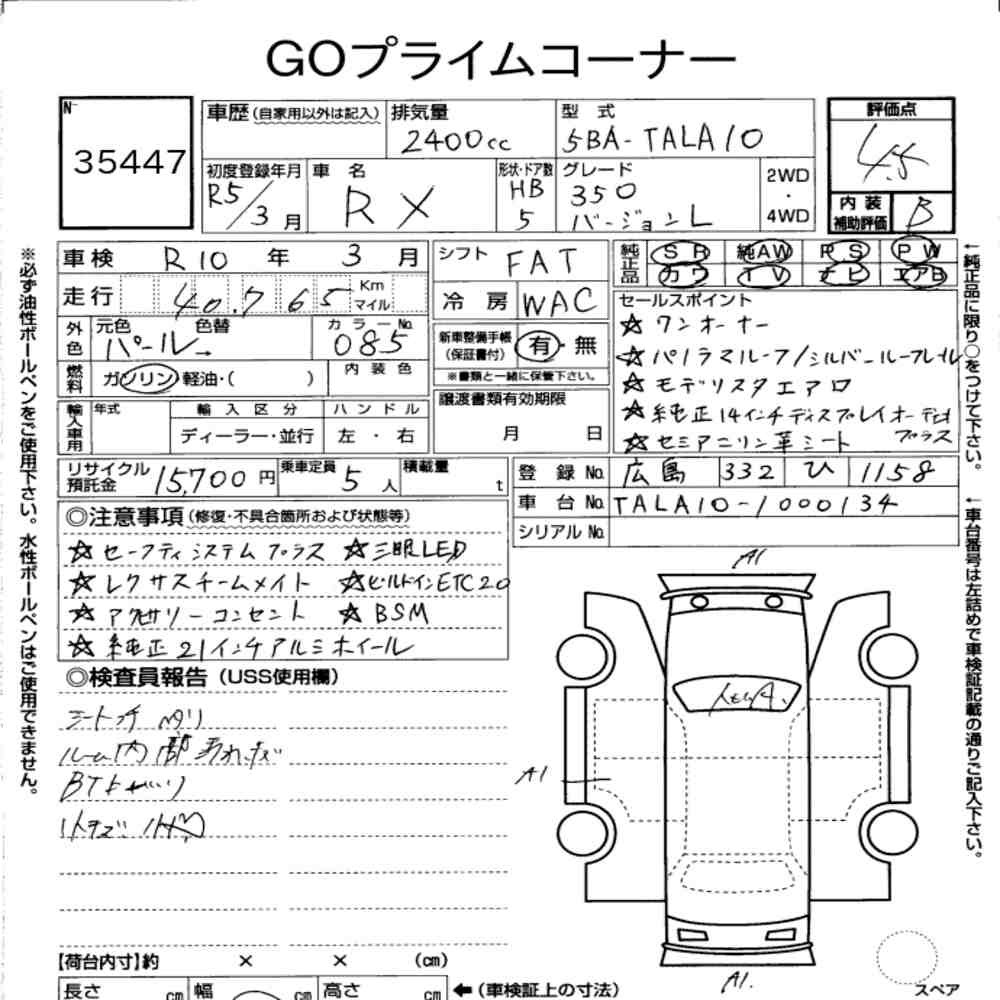 GOプライムコーナー
No.
35447
車歴(自家用以外は記入)
排気量
2400cc
型 式
5BA-TALA10
評価点
4.5
初度登録年月
R5/3月
車 名
RX
形状・ドア数
HB
5
グレード
350
バージョンL
2WD
・
4WD
内 装
補助評価
B
車検 R10 年 3 月
シフト FAT
純正品
SR 純AW PS PW
カワ TV ナビ エアB
走行 40,765 Km マイル
冷 房 WAC
セールスポイント
☆ワンオーナー
☆パノラマルーフ/シルバールーフレイル
☆モデリスタエアロ
☆純正14インチディスプレイオーディオ
プラス
☆セミアニリン革シート
外色
元色 色替
パール
カラーNo.
085
新車整備手帳
(保証書付)
有・無
※書類と一緒に保管下さい。
燃料
ガソリン・軽油・( )
内 装 色
譲渡書類有効期限
月 日
輸入車用
年式
輸 入 区 分
ディーラー・並行
ハ ン ド ル
左 ・ 右
リサイクル
預託金
15,700円
乗車定員
5人
積載量
t
登 録 No. 広島 332 ひ 1158
車 台 No. TALA10-1000134
シリアル No.
◎注意事項(修復・不具合箇所および状態等)
☆セーフティシステムプラス ☆三眼LED
☆レクサスチームメイト ☆ビルドインETC2.0
☆アクセサリーコンセント ☆BSM
☆純正21インチアルミホイール
◎検査員報告(USS使用欄)
ルーム内部
A1
A1
A1.
【荷台内寸】約 × × (cm)
長さ cm 幅 cm 高さ cm
←(車検証上の寸法)
スペア
※必ず油性ボールペンをご使用下さい。水性ボールペンはご使用できません。
←純正品に限り○をつけて下さい。
←車台番号は左詰めで車検証記載の通りご記入下さい。